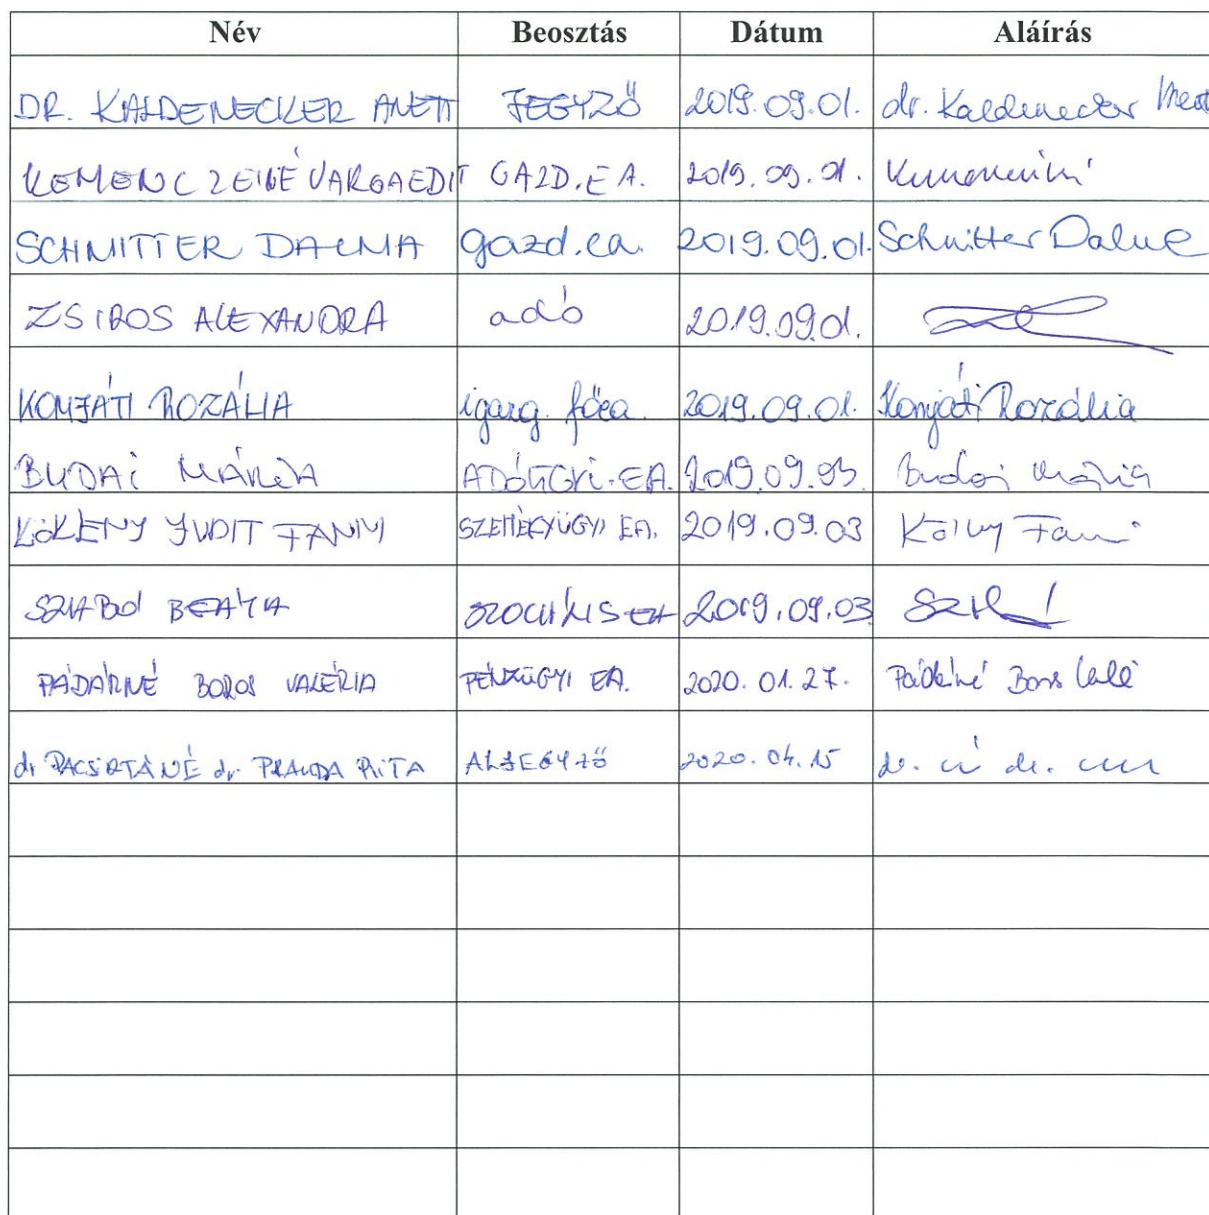 Név Beosztás Dátum Aláírás
DR. KALDENECKER ANETT JEGYZŐ 2019.09.01. dr. Kaldenecker
KEMENCZEINÉ VARGA EDIT GAZD. EA. 2019.09.01.
SCHMITTER DALMA gazd. ea. 2019.09.01. Schmitter Dalma
ZSIROS ALEXANDRA adó 2019.09.01.
KOMJÁTI ROZÁLIA igazg. főea. 2019.09.01. Komjáti Rozália
BUDAI MÁRIA ADÓÜGYI. EA. 2019.09.03. Budai Mária
KÖKÉNY JUDIT FANNI SZEMÉLYÜGYI EA. 2019.09.03
SZABÓ BEÁTA SZOCIÁLIS EA 2019.09.03
PÁDÁRNÉ BOROS VALÉRIA PÉNZÜGYI EA. 2020.01.27. Pádárné Boros
dr PACSIRTÁNÉ dr. PRAUDA RITA ALJEGYZŐ 2020.04.15